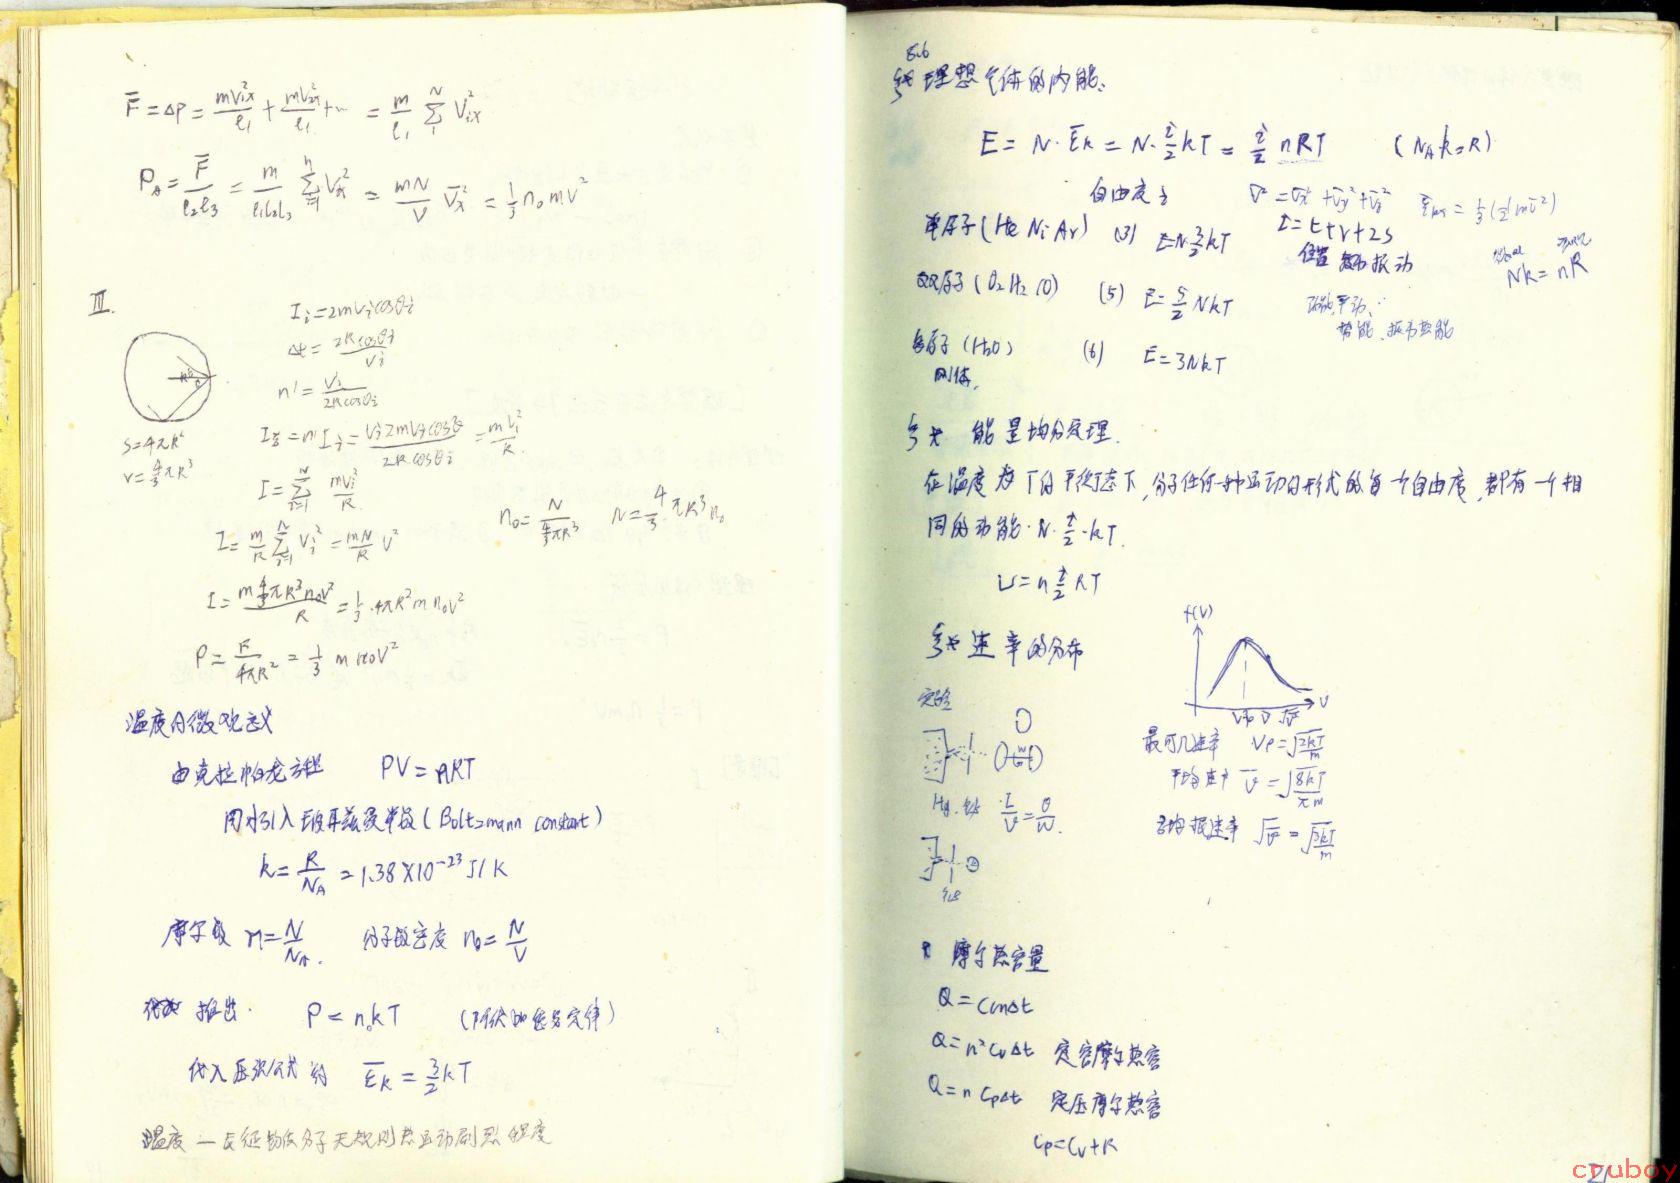 F̄ = ΔP = mV₁ₓ²/ℓ₁ + mV₂ₓ²/ℓ₁ + … = m/ℓ₁ Σ₁ᴺ Vᵢₓ²
= F̄/ℓ₂ℓ₃ = m/ℓ₁ℓ₂ℓ₃ Σᵢ₌₁ⁿ Vᵢₓ² = mN/V V̄ₓ² = 1/3 n₀mV²
Ⅲ.
Iᵢ = 2mVᵢcosθᵢ
Δt = 2Rcosθᵢ/Vᵢ
n' = Vᵢ/2Rcosθᵢ
S=4πR²
V=4/3πR³
= n'Iᵢ = Vᵢ2mVᵢcosθ/2Rcosθᵢ = mVᵢ²/R
I = Σᵢ₌₁ᴺ mVᵢ²/R
n₀ = N/(4/3πR³) N = 4/3πR³n₀
I = m/R Σᵢ₌₁ᴺ Vᵢ² = mN/R V²
I = m4/3πR³n₀V²/R = 1/3·4πR²mn₀V²
P = F/4πR² = 1/3 mn₀V²
温度的微观意义
由克拉帕龙方程 PV = nRT
用水引入玻耳兹曼常数 (Boltzmann constant)
k = R/N_A = 1.38×10⁻²³ J/K
摩尔数 n = N/N_A. 分子数密度 n₀ = N/V
推出. P = n₀kT (阿伏伽德罗定律)
代入压强公式得 ε̄k = 3/2kT
温度 — 表征物体分子无规则热运动剧烈程度
8.6
理想气体的内能.
E = N·ε̄k = N·i/2kT = i/2 nRT (N_A k=R)
自由度 i
V̄² = V̄x²+V̄y²+V̄z²
= 1/3(½mv̄²)
单原子 (He Ni Ar) (3) E=N·3/2kT
I = t+r+2s
振动
Nk = nR
双原子 (O₂ H₂ CO) (5) E = 5/2NkT
势能.
多原子 (H₂O) (6) E = 3NkT
刚体.
能量均分定理.
在温度为T的平衡态下,分子任何一种运动的形式的每一个自由度,都有一个相
同的动能·N·i/2·kT.
U = n i/2 RT
速率的分布
f(V)
V
Vp V̄
实验
最可几速率 Vp = √(2kT/m)
平均速率 V̄ = √(8kT/πm)
方均根速率 √V̄² = √(3kT/m)
L/V = θ/ω.
摩尔热容量
Q = CmΔt
Q = n²CvΔt 定容摩尔热容
Q = nCpΔt 定压摩尔热容
Cp=Cv+R
21
cruboy